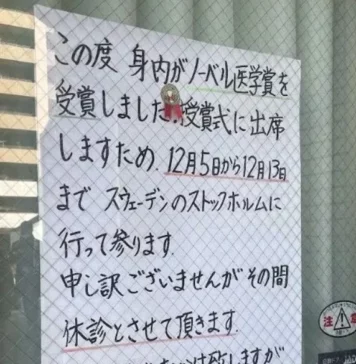 この度 身内がノーベル医学賞を
受賞しました。授賞式に出席
しますため、12月5日から12月13日
まで スウェーデンのストックホルムに
行って参ります。
申し訳ございませんが その間
休診とさせて頂きます。
致しますが
注意